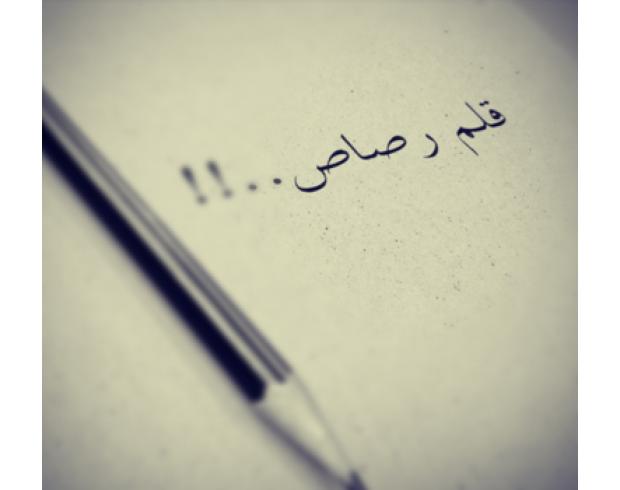 قلم رصاص..!!